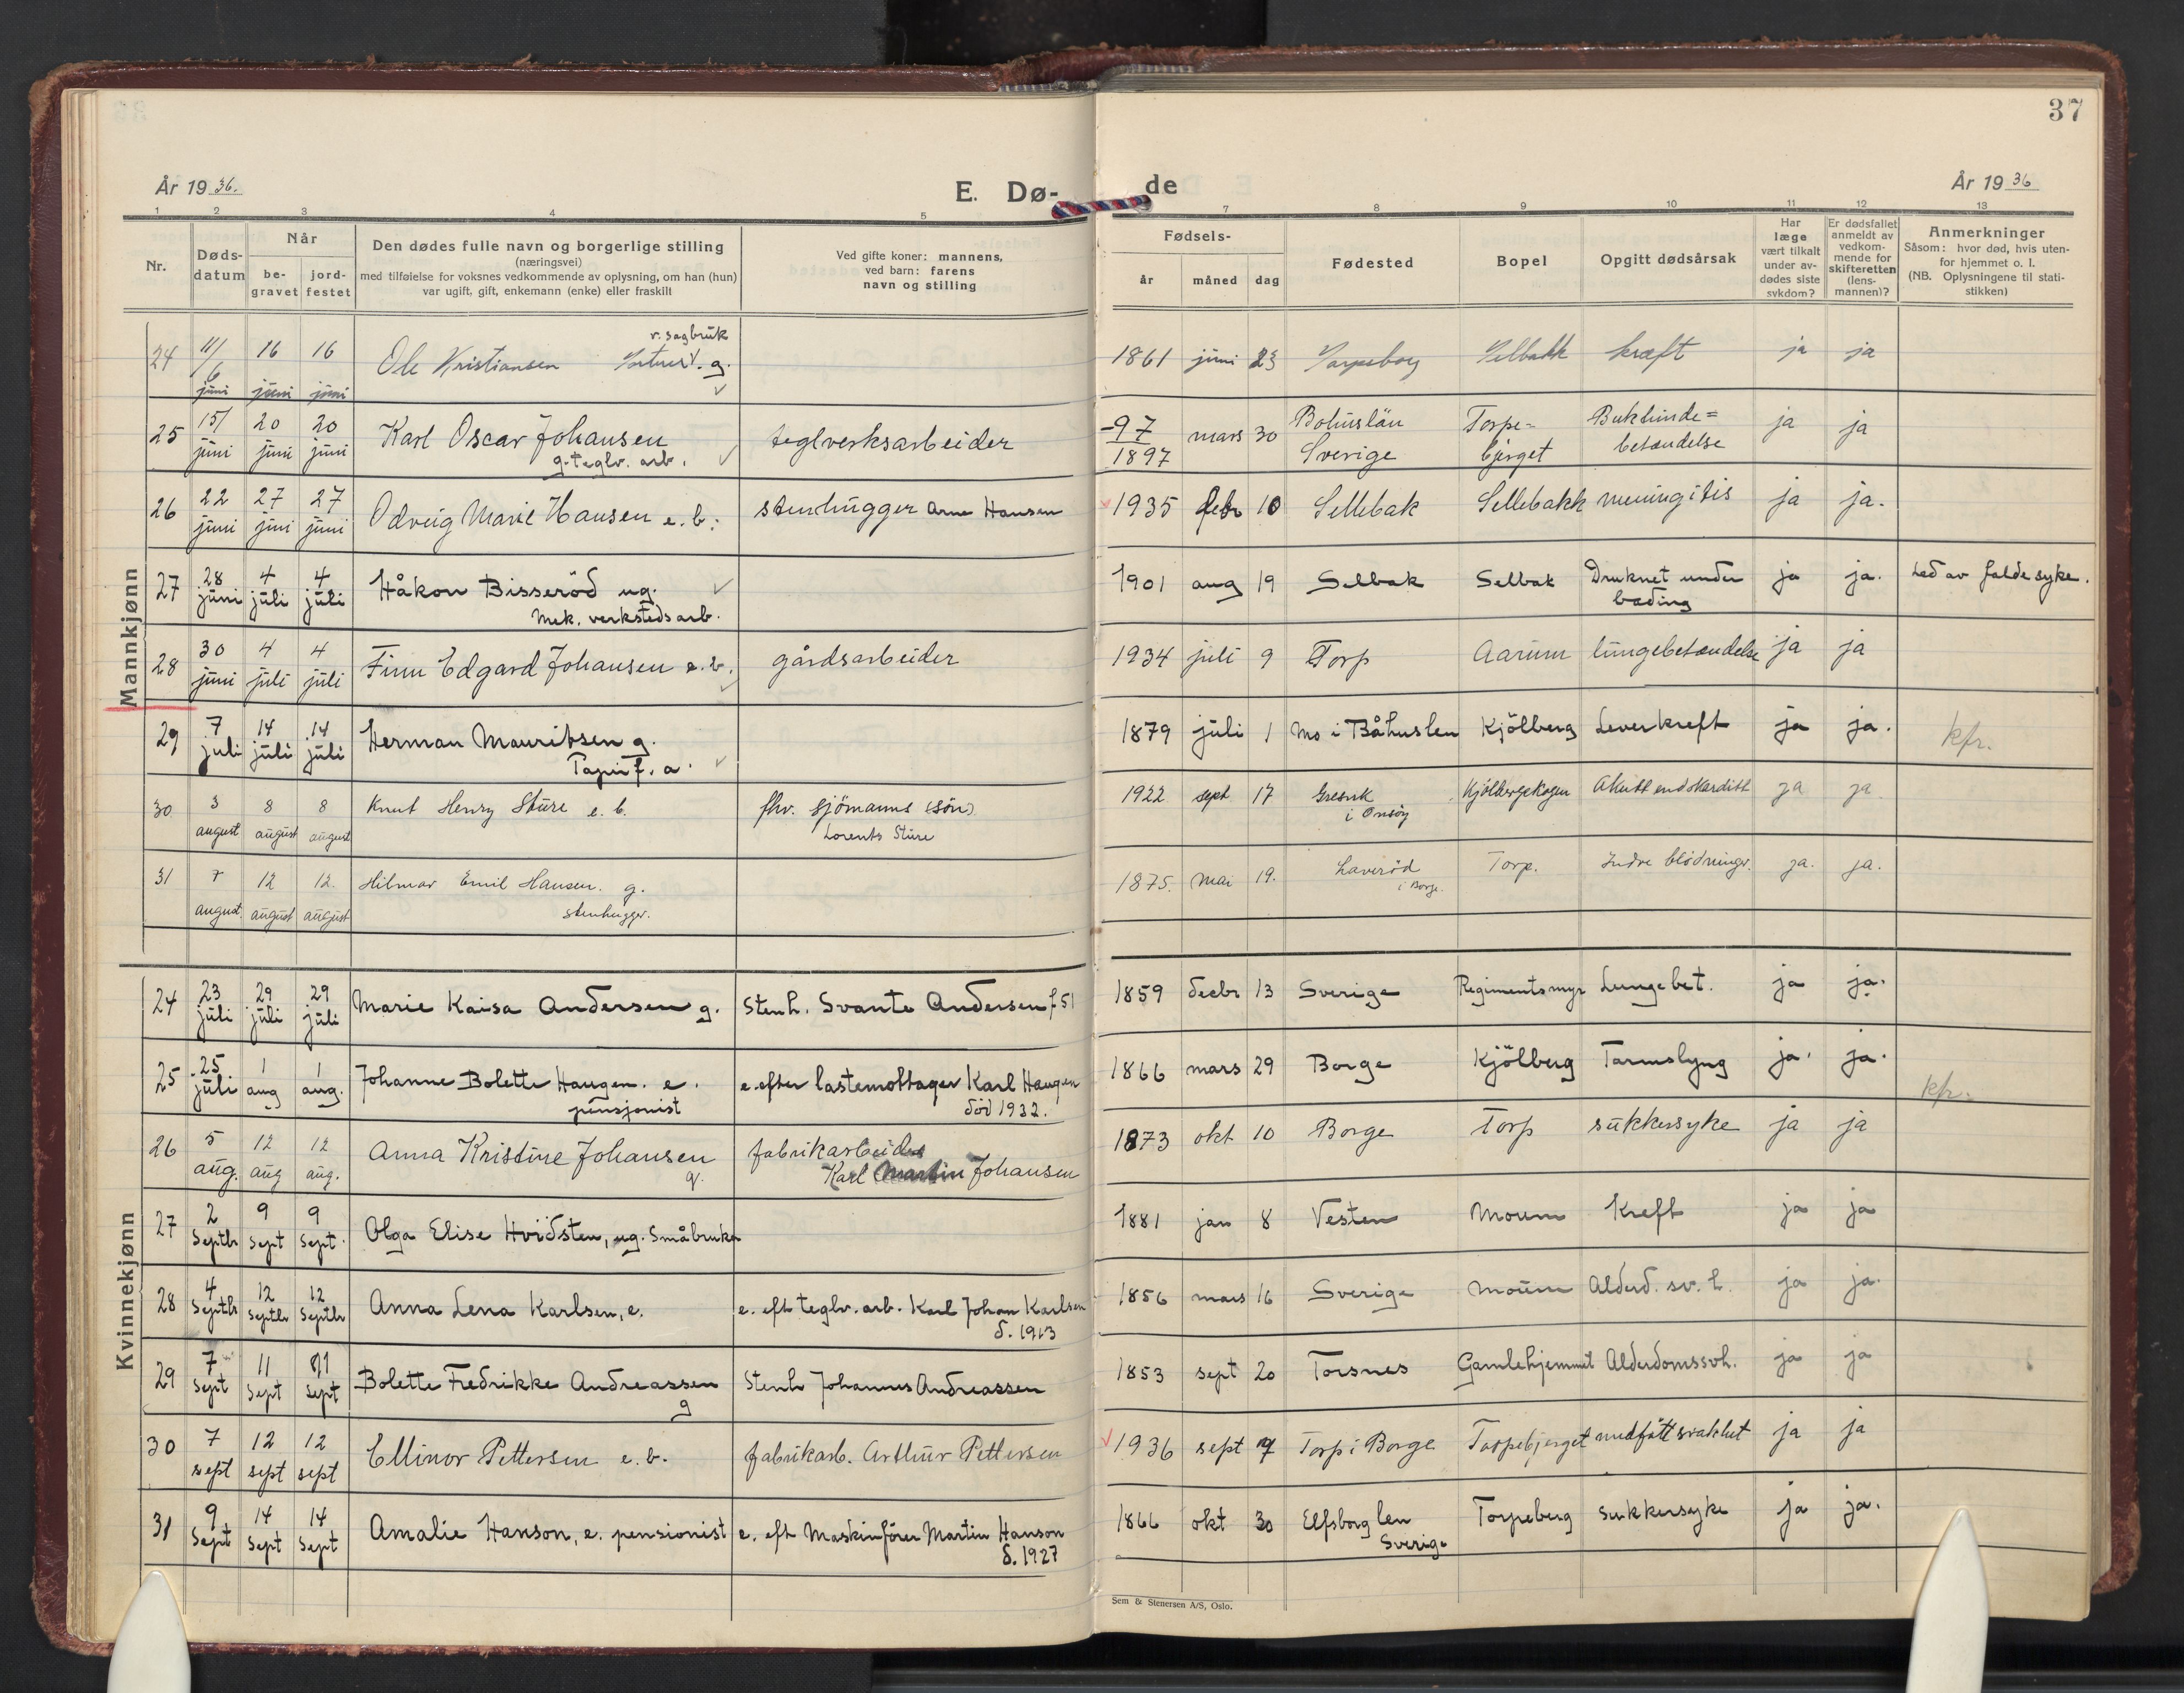 37
År 1936.
E. Dø-
de
År 1936
1 2 3 4 5 7 8 9 10 11 12 13
Nr.
Døds-
datum
Når
be-
gravet
jord-
festet
Den dødes fulle navn og borgerlige stilling
(næringsvei)
med tilføielse for voksnes vedkommende av oplysning, om han (hun)
var ugift, gift, enkemann (enke) eller fraskilt
Ved gifte koner: mannens,
ved barn: farens
navn og stilling
Fødsels-
år måned dag
Fødested
Bopel
Opgitt dødsårsak
Har
læge
vært tilkalt
under av-
dødes siste
sykdom?
Er dødsfallet
anmeldt av
vedkom-
mende for
skifteretten
(lens-
mannen)?
Anmerkninger
Såsom: hvor død, hvis uten-
for hjemmet o. l.
(NB. Oplysningene til stati-
stikken)
Mannkjønn
v. sagbruk
24 11/6 16 16 Ole Kristiansen g. 1861 juni 23 Sarpsborg Selbakk kræft ja ja
juni juni juni
25 15/ 20 20 Karl Oscar Johansen teglverksarbeider -97 mars 30 Bohuslän Torpe- Bukhinde= ja ja
juni juni juni g. teglv. arb. 1897 Sverige bjerget betændelse
26 22 27 27 Odveig Marie Hansen e. b. stenhugger Arne Hansen 1935 febr 10 Sellebak Sellebakk meningitis ja ja.
juni juni juni
27 28 4 4 Håkon Bisseröd ug. 1901 aug 19 Selbak Selbak Druknet under ja ja. Led av faldesyke.
juni juli juli Mek. verkstedsarb. bading
28 30 4 4 Finn Edgard Johansen e. b. gårdsarbeider 1934 juli 9 Torp Aarum lungebetændelse ja ja
juni juli juli
29 7 14 14 Herman Mauritsen g. 1879 juli 1 Mo i Båhuslen Kjölberg Leverkreft ja ja. kfr.
juli juli juli Papirf. a.
30 3 8 8 Knut Henry Sture e. b. fhv. sjömanns (sön) 1922 sept 17 Gresvik Kjölbergskogen Akutt endokarditt ja ja
august august august Lorents Sture i Onsöy
31 7 12 12. Hilmar Emil Hansen. g. 1875. mai 19. Laveröd Torp. Indre blödninger. ja. ja.
august. august august stenhugger. i Borge.
Kvinnekjønn
24 23 29 29 Marie Kaisa Andersen g. Stenh. Svante Andersen f 51 1859 decbr 13 Sverige Regimentsmyr Lungebet. ja ja.
juli juli juli
25 25 1 1 Johanne Bolette Haugen. e. e. efter lastemottager Karl Haugen 1866 mars 29 Borge Kjölberg Tarmslyng ja. ja. kfr.
juli aug aug. pensjonist död 1932.
26 5 12 12 Anna Kristine Johansen fabrikarbeider 1873 okt 10 Borge Torp sukkersyke ja ja
aug. aug aug. g. Karl Martin Johansen
27 2 9 9 Olga Elise Hvidsten, ug. Småbruker 1881 jan 8 Vesten Moum Kreft ja ja
Septbr Sept Sept.
28 4 12 12 Anna Lena Karlsen, e. e. eft teglv. arb. Karl Johan Karlsen 1856 mars 16 Sverige Moum Alderd. sv. h. ja ja.
Septbr Septbr Septbr d. 1913
29 7 11 11 Bolette Fredrikke Andreassen Stenh Johannes Andreassen 1853 sept 20 Torsnes Gamlehjemmet Alderdomssvh. ja ja
Sept Sept Sept g
30 7 12 12 Ellinor Pettersen e. b. fabrikarb. Arthur Pettersen 1936 sept 7 Torp i Borge Torpebjerget medfött svakhet ja ja
sept sept sept
31 9 14 14 Amalie Hanson, e. pensionist e. eft Maskinförer Martin Hanson 1866 okt 30 Elfsborg len Torpeberg sukkersyke ja ja.
Sept Sept Sept d. 1927 Sverige
Sem & Stenersen A/S, Oslo.